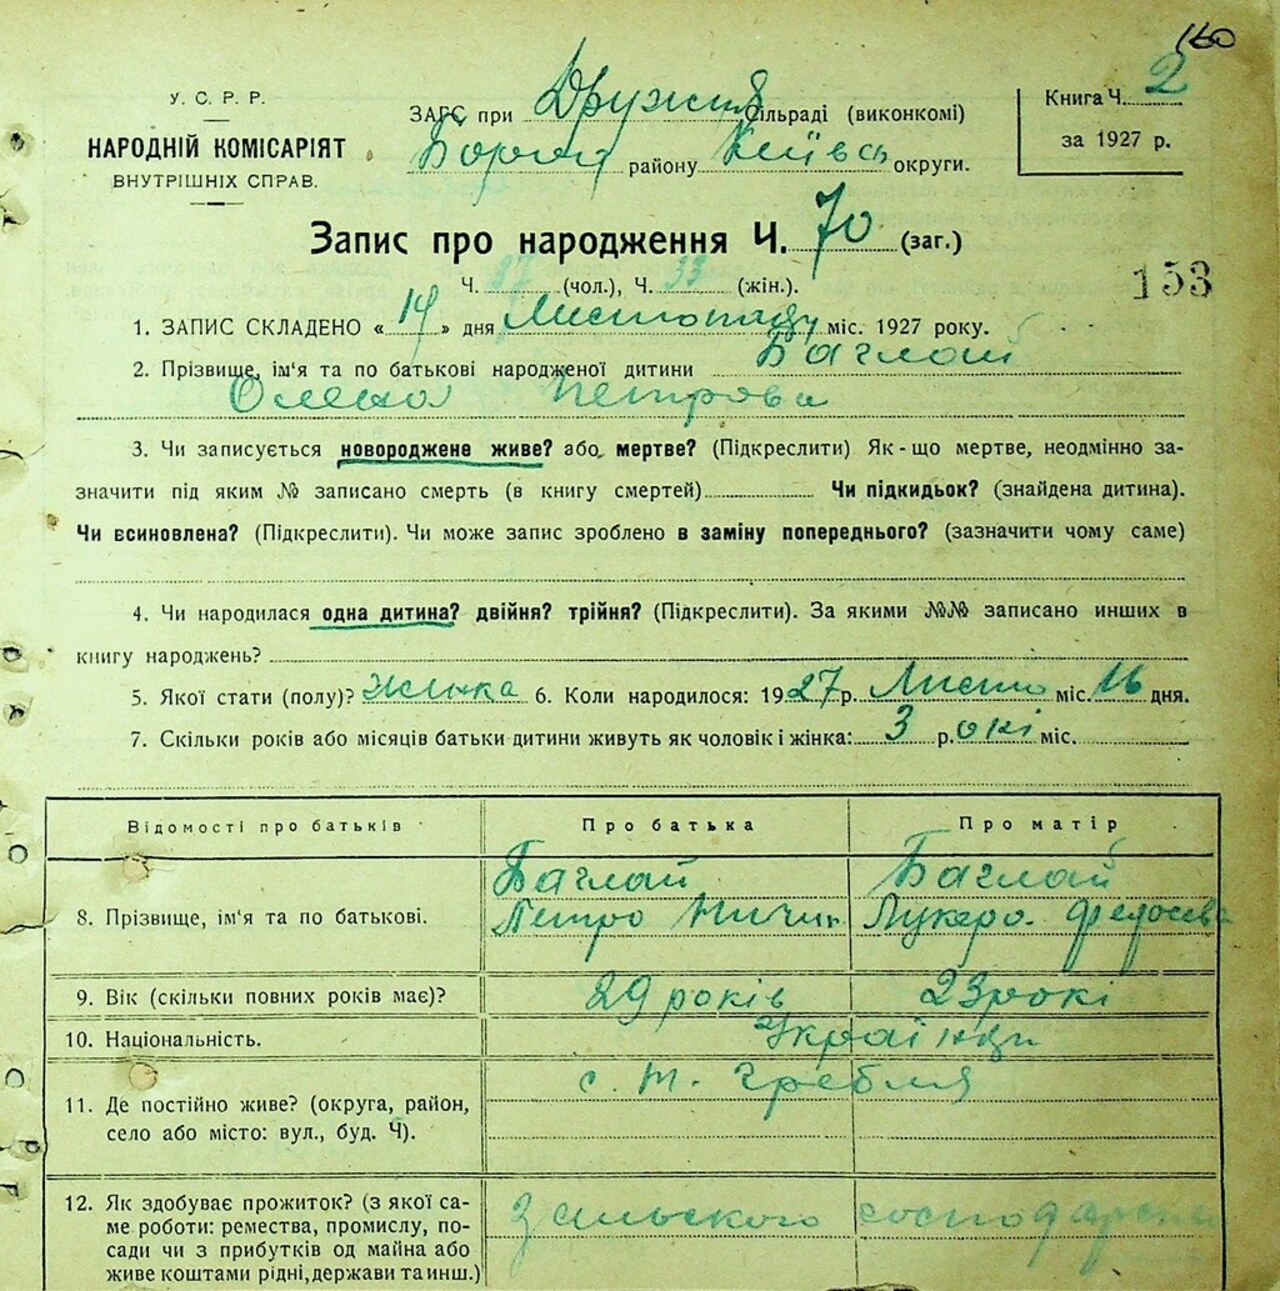 160
У. С. Р. Р.
НАРОДНІЙ КОМІСАРІЯТ
ВНУТРІШНІХ СПРАВ.
ЗАГС при Дружня Сільраді (виконкомі)
району Київсь округи.
Книга Ч. 2
за 1927 р.
Запис про народження Ч. 70 (заг.)
Ч. 37 (чол.), Ч. 33 (жін.).
153
1. ЗАПИС СКЛАДЕНО «14» дня Листопаду міс. 1927 року.
2. Прізвище, ім'я та по батькові народженої дитини Баглай
Олена Петрова
3. Чи записується новороджене живе? або мертве? (Підкреслити) Як-що мертве, неодмінно за-
значити під яким № записано смерть (в книгу смертей) Чи підкидьок? (знайдена дитина).
Чи всиновлена? (Підкреслити). Чи може запис зроблено в заміну попереднього? (зазначити чому саме)
4. Чи народилася одна дитина? двійня? трійня? (Підкреслити). За якими №№ записано инших в
книгу народжень?
5. Якої стати (полу)? Жінка 6. Коли народилося: 1927 р. Листо міс. 16 дня.
7. Скільки років або місяців батьки дитини живуть як чоловік і жінка: 3 р. окі міс.
Відомості про батьків
Про батька
Про матір
8. Прізвище, ім'я та по батькові.
Баглай
Петро Ничип
Баглай
Лукеро. Федосева
9. Вік (скільки повних років має)? 29 років 23 рокі
10. Національність. Українци
11. Де постійно живе? (округа, район,
село або місто: вул., буд. Ч).
с. М. Гребля
12. Як здобуває прожиток? (з якої са-
ме роботи: ремества, промислу, по-
сади чи з прибутків од майна або
живе коштами рідні, держави та инш.)
З сильского господарства